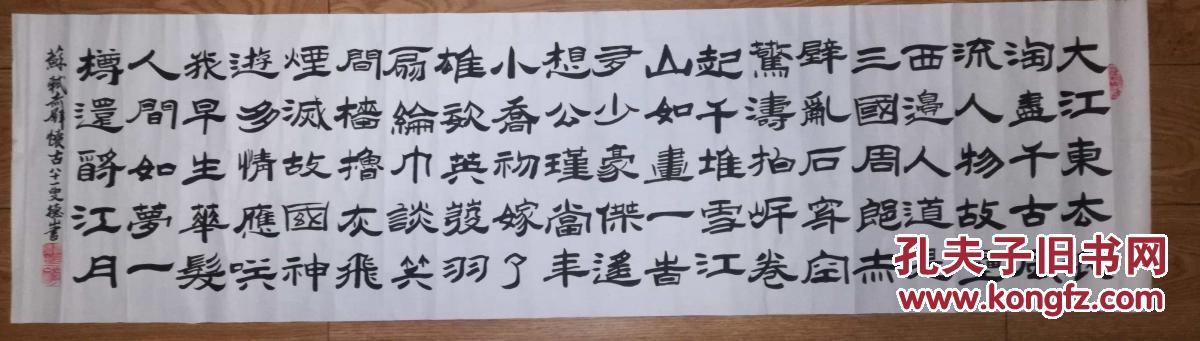 大江東去
淘盡千古風
流人物故壘
西邊人道
三國周郎赤
壁亂石穿空
驚濤拍岸卷
起千堆雪江
山如畫一時
多少豪傑遙
想公瑾當年
小喬初嫁了
雄姿英發羽
扇綸巾談笑
間檣櫓灰飛
煙滅故國神
遊多情應笑
我早生華髮
人間如夢一
樽還酹江月
蘇軾赤壁懷古八十一叟德書
孔夫子旧书网
www.kongfz.com